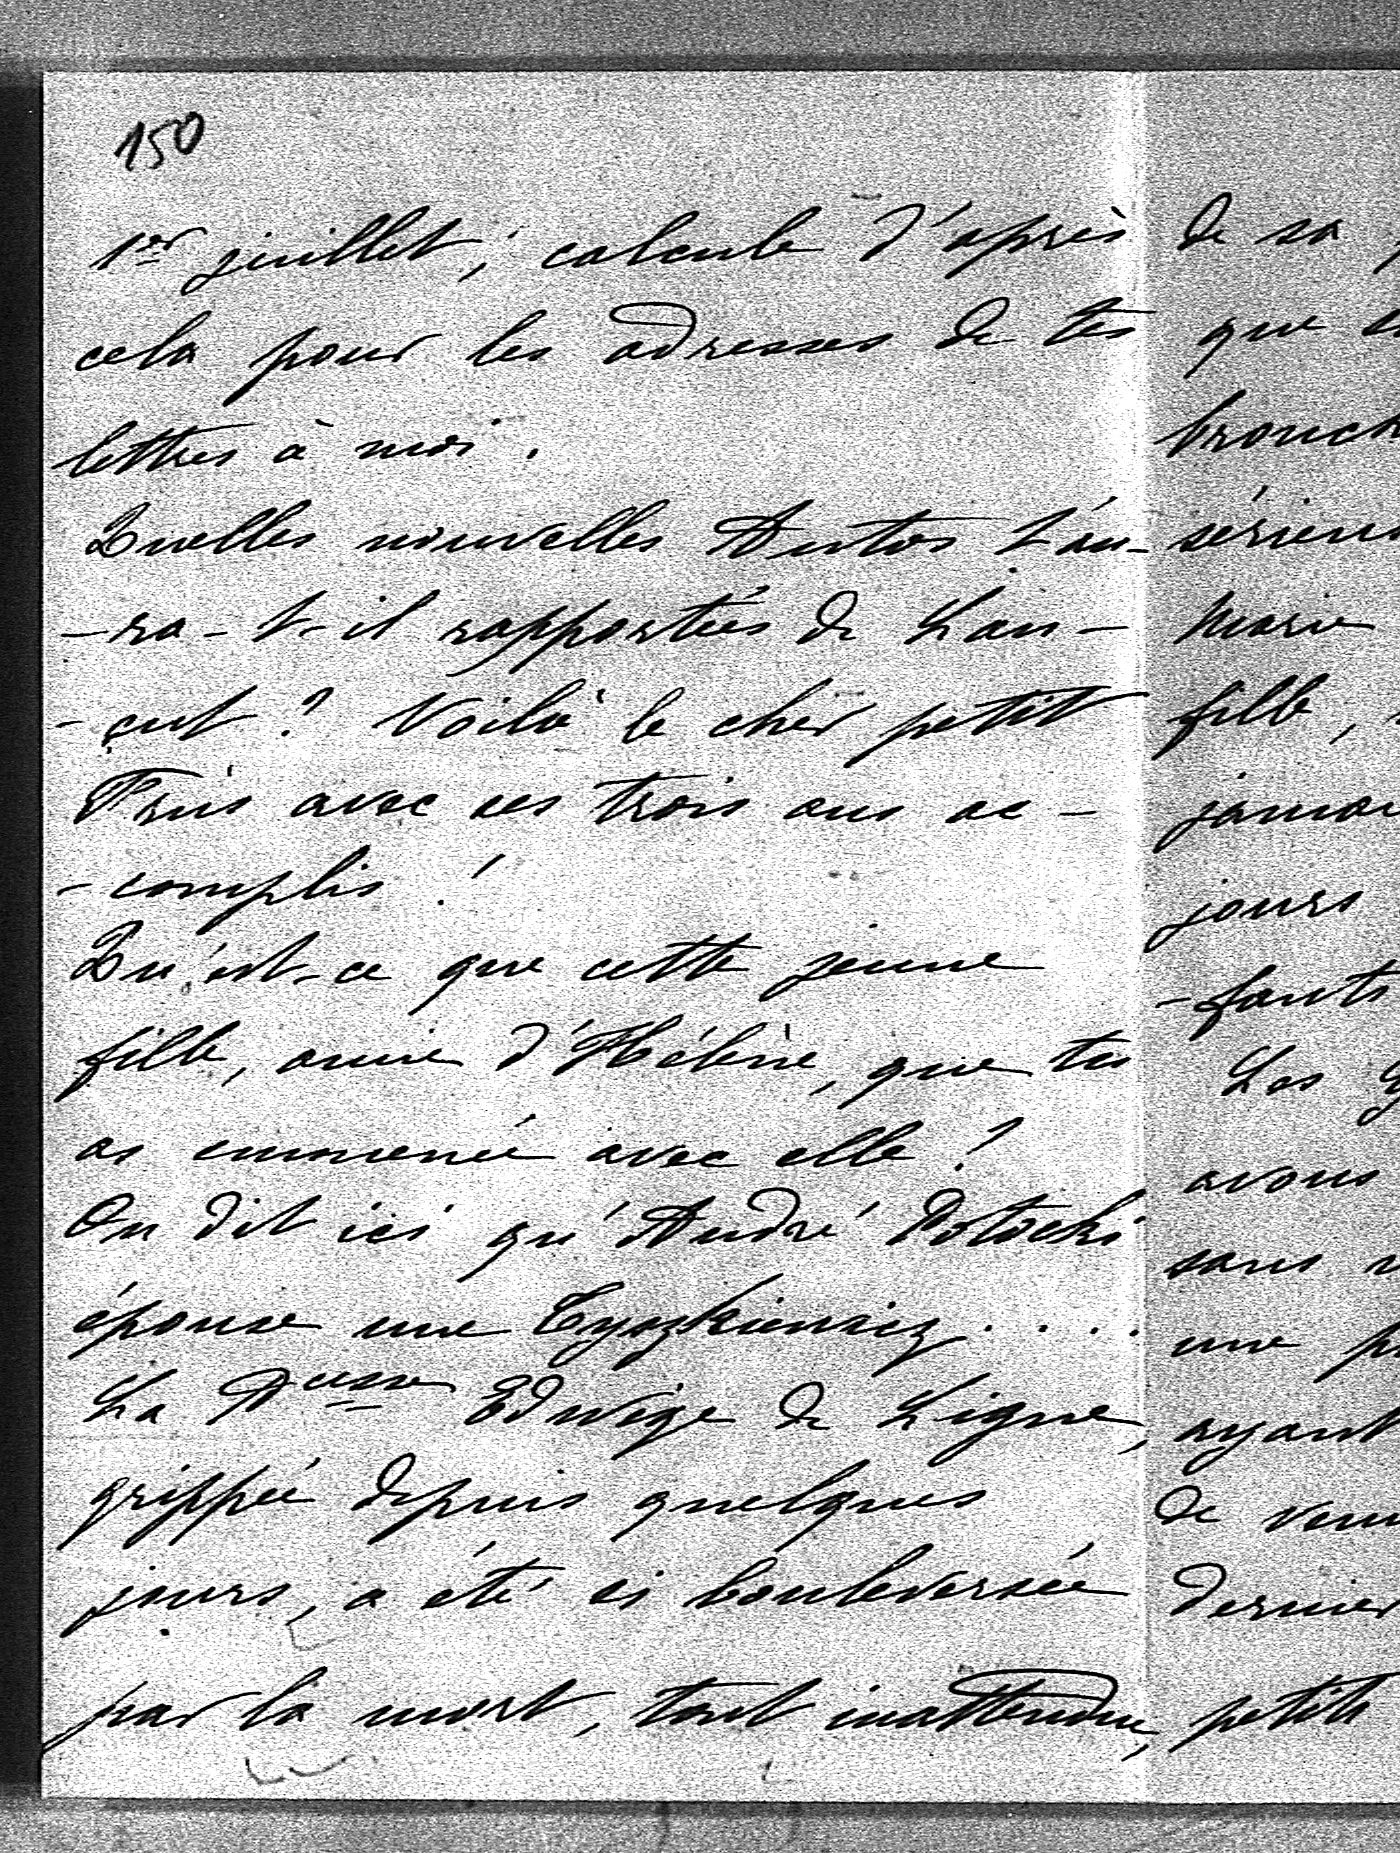 150
1er juillet; calcule d'après
cela pour les adresses de tes
lettres à moi.
Quelles nouvelles Antos
-ra-t-il rapportées de Lan-
-çut? Voilà le cher petit
avec ses trois ans ac-
-complis!
Qu'est-ce que cette jeune
fille, amie d'Hélène, que tu
as emmenée avec elle?
On dit ici qu'André Potocki
épouse une Tyszkiewicz....
La Psse Edwige de Ligne,
grippée depuis quelques
jours, a été si bouleversée
par la mort, tout inattendue,
de sa
que
bronch
sérieu
Marie
fille,
jamai
jours
-fants
Les
avons
sans
une
ayant
de venir
dernier
petite